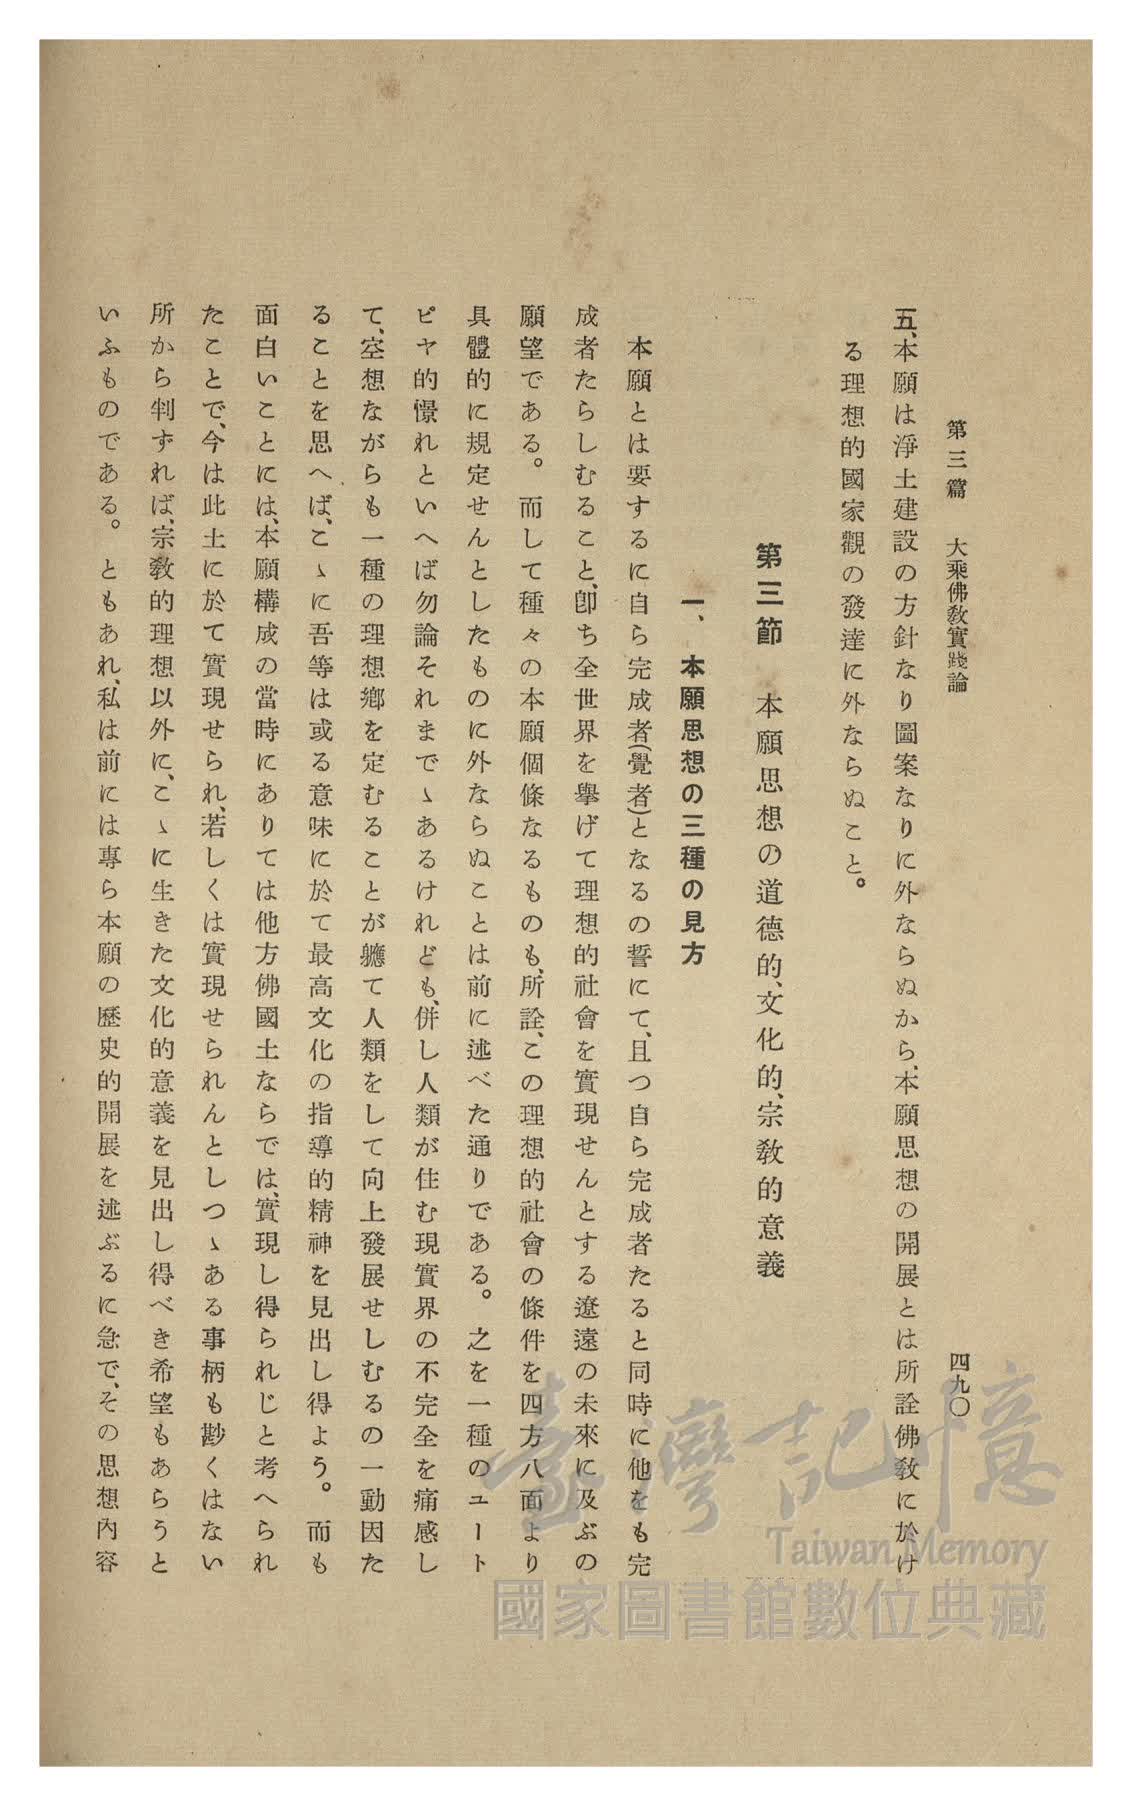 第三篇 大乘佛教實踐論 四九〇
五、本願は淨土建設の方針なり圖案なりに外ならぬから、本願思想の開展とは所詮佛教に於け
る理想的國家觀の發達に外ならぬこと。
第三節 本願思想の道德的、文化的、宗教的意義
一、本願思想の三種の見方
本願とは要するに自ら完成者(覺者)となるの誓にて、且つ自ら完成者たると同時に他をも完
成者たらしむること、卽ち全世界を擧げて理想的社會を實現せんとする遼遠の未來に及ぶの
願望である。而して種々の本願個條なるものも、所詮、この理想的社會の條件を四方八面より
具體的に規定せんとしたものに外ならぬことは前に述べた通りである。之を一種のユート
ピヤ的憬れといへば勿論それまでゝあるけれども、併し人類が住む現實界の不完全を痛感し
て、空想ながらも一種の理想鄕を定むることが軈て人類をして向上發展せしむるの一動因た
ることを思へば、こゝに吾等は或る意味に於て最高文化の指導的精神を見出し得よう。而も
面白いことには、本願構成の當時にありては他方佛國土ならでは、實現し得られじと考へられ
たことで、今は此土に於て實現せられ、若しくは實現せられんとしつゝある事柄も尠くはない
所から判ずれば、宗教的理想以外に、こゝに生きた文化的意義を見出し得べき希望もあらうと
いふものである。ともあれ、私は前には專ら本願の歷史的開展を述ぶるに急で、その思想內容
臺灣記憶
Taiwan Memory
國家圖書館數位典藏